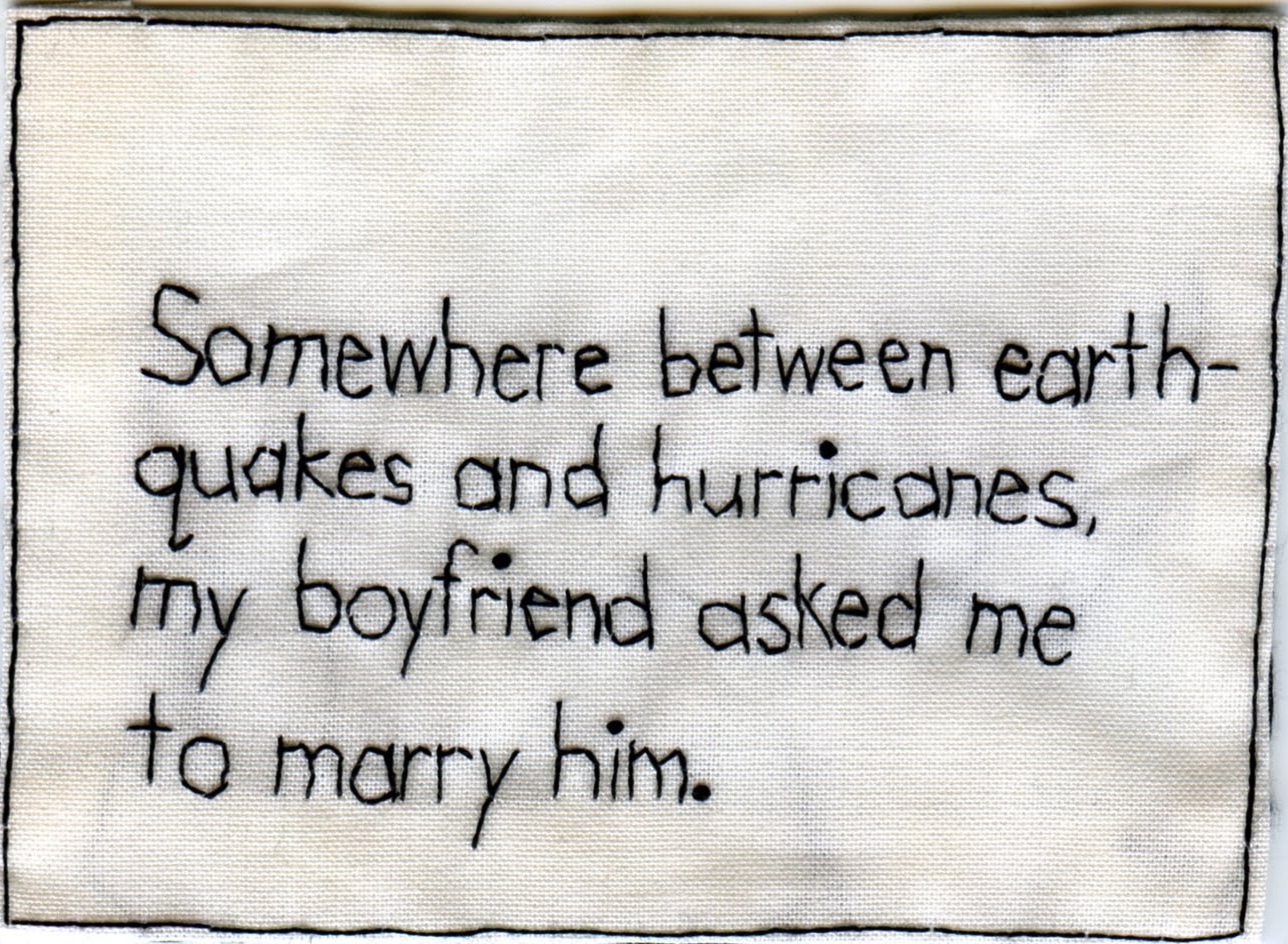 Somewhere between earth-
quakes and hurricanes,
my boyfriend asked me
to marry him.